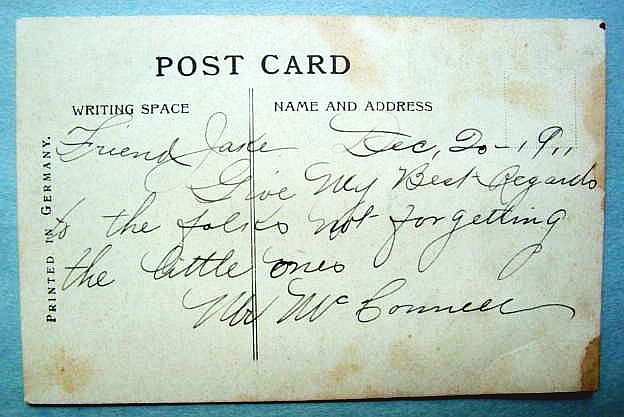 POST CARD
WRITING SPACE
NAME AND ADDRESS
PRINTED IN GERMANY.
Friend Jake Dec, 20-1911
Give My Best Regards
to the folks not forgetting
the little ones
Mc Connell